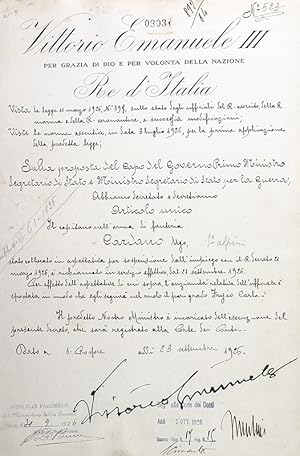 03031
N° 523
Vittorio Emanuele III
PER GRAZIA DI DIO E PER VOLONTÀ DELLA NAZIONE
Re d'Italia
Vista la legge 11 marzo 1926, N° 397, sullo stato degli ufficiali del R. esercito, della R.
marina e della R. aeronautica, e successive modificazioni;
Viste le norme esecutive, in data 3 luglio 1926, per la prima applicazione
della predetta legge;
Sulla proposta del Capo del Governo Primo Ministro
Segretario di Stato e Ministro Segretario di Stato per la Guerra;
Abbiamo decretato e decretiamo
Articolo unico
Il capitano nell'arma di fanteria
Cordano Ugo, 1° alpini
stato collocato in aspettativa per sospensione dall'impiego con il R. Decreto 21
marzo 1926 è richiamato in servizio effettivo dal 21 settembre 1926.
Per effetto dell'aspettativa di cui sopra l'anzianità relativa dell'ufficiale è
spostata in modo che egli segua nel ruolo il pari grado Carlo.
Il predetto Nostro Ministro è incaricato dell'esecuzione del
presente Decreto che sarà registrato alla Corte dei Conti.
Dato a S. Rossore addì 23 settembre 1926.
Vittorio Emanuele
VISTO ALLA RAGIONERIA
9 1926
alla Corte dei Conti
OTT. 1926
Guerra
Mussolini